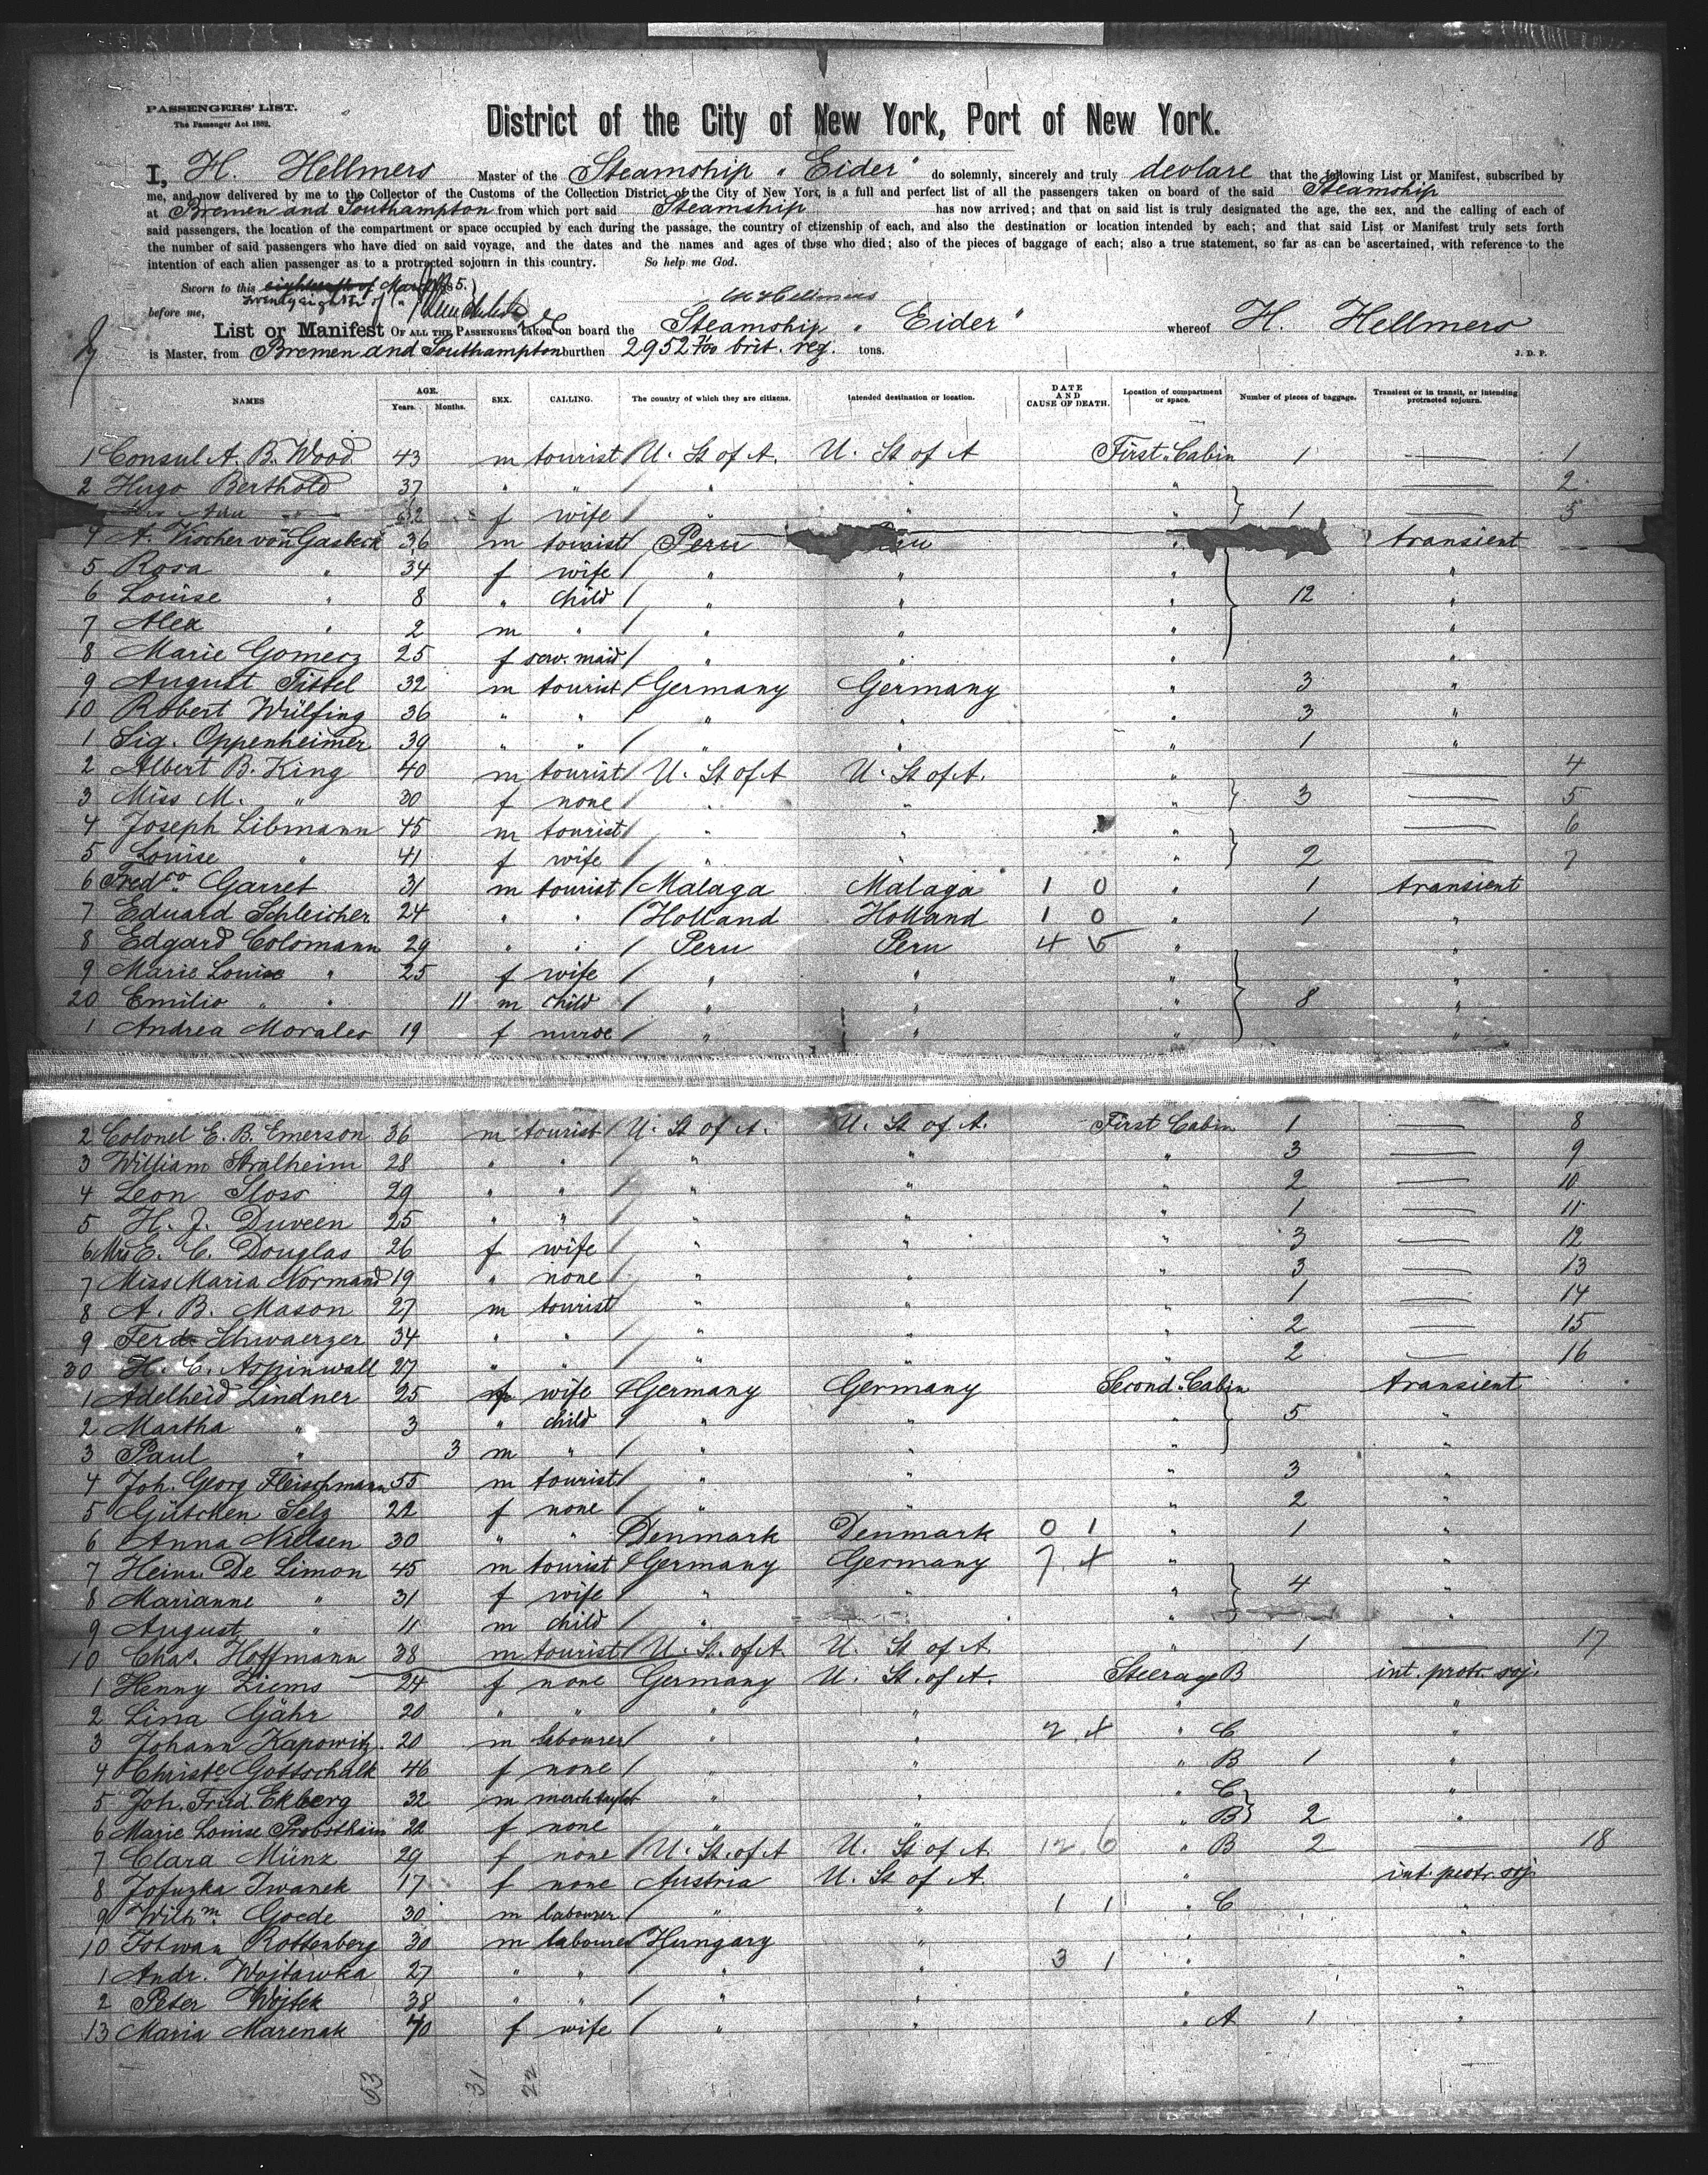 PASSENGERS' LIST.
The Passenger Act 1882.
District of the City of New York, Port of New York.
I, H. Hellmers Master of the Steamship „Eider" do solemnly, sincerely and truly declare that the following List or Manifest, subscribed by
me, and now delivered by me to the Collector of the Customs of the Collection District of the City of New York, is a full and perfect list of all the passengers taken on board of the said Steamship
at Bremen and Southampton from which port said Steamship has now arrived; and that on said list is truly designated the age, the sex, and the calling of each of
said passengers, the location of the compartment or space occupied by each during the passage, the country of citizenship of each, and also the destination or location intended by each; and that said List or Manifest truly sets forth
the number of said passengers who have died on said voyage, and the dates and the names and ages of those who died; also of the pieces of baggage of each; also a true statement, so far as can be ascertained, with reference to the
intention of each alien passenger as to a protracted sojourn in this country. So help me God.
Sworn to this eighteenth of March 5.
twenty eighth of "
before me, H Hellmers
List or Manifest OF ALL THE PASSENGERS taken on board the Steamship „Eider" whereof H. Hellmers
is Master, from Bremen and Southampton burthen 2952 brit. reg. tons. J. D. P.
NAMES AGE. Years. Months. SEX. CALLING. The country of which they are citizens. Intended destination or location. DATE AND CAUSE OF DEATH. Location of compartment or space. Number of pieces of baggage. Transient or in transit, or intending protracted sojourn.
1 Consul A. B. Wood 43 m tourist / U. St of A. U. St of A First Cabin 1 — 1
2 Hugo Berthold 37 " " / " " " — 2
f wife / " " " 1 — 3
4 A. Vischer von Gasbeck 36 m tourist / Peru transient
5 Rosa " 34 f wife / " " " "
6 Louise " 8 " child / " " " 12 "
7 Alex " 2 m " / " " " "
8 Marie Gomerz 25 f serv. maid / " " " "
9 August Tittel 32 m tourist / Germany Germany " 3 "
10 Robert Wülfing 36 " " / " " " 3 "
1 Sig. Oppenheimer 39 " " / " " " 1 "
2 Albert B. King 40 m tourist / U. St of A U. St of A. " — 4
3 Miss M. " 30 f none / " " " 3 — 5
4 Joseph Libmann 45 m tourist / " " — 6
5 Louise " 41 f wife / " " " 2 — 7
6 Fredco Garret 31 m tourist / Malaga Malaga 1 0 " 1 transient
7 Eduard Schleicher 24 " " / Holland Holland 1 0 " 1 "
8 Edgard Colomann 29 " " / Peru Peru 4 5 "
9 Marie Louise " 25 f wife / " " "
20 Emilio " " 11 m child / " " " 8 "
1 Andrea Morales 19 f nurse / " " " "
2 Colonel E. B. Emerson 36 m tourist / U. St of A. U. St of A. First Cabin 1 — 8
3 William Stralheim 28 " " / " " " 3 — 9
4 Leon Sloss 29 " " / " " " 2 — 10
5 H. J. Duveen 25 " " / " " " 1 — 11
6 Mrs E. C. Douglas 26 f wife / " " " 3 — 12
7 Miss Maria Normand 19 " none / " " " 3 — 13
8 A. B. Mason 27 m tourist " " " 1 — 14
9 Ferd. Schwaerzer 34 " " / " " " 2 — 15
30 H. C. Aspinwall 27 " " / " " " 2 — 16
1 Adelheid Lindner 25 f wife / Germany Germany Second Cabin transient
2 Martha " 3 " child / " " " 5 "
3 Paul " 3 m " / " " " "
4 Joh. Georg Fleischmann 55 m tourist / " " " 3 "
5 Gütchen Selz 22 f none / " " " 2 "
6 Anna Nielsen 30 " " Denmark Denmark 0 1 " 1 "
7 Heinr. De Limon 45 m tourist / Germany Germany 7 4 " "
8 Marianne " 31 f wife / " " " 4 "
9 August " 11 m child / " " "
10 Chas. Hoffmann 38 m tourist / U. St. of A. U. St of A. " 1 — 17
1 Henny Ziems 24 f none Germany U. St. of A. Steerage B int. protr. soj.
2 Lina Gähr 20 " " " " " "
3 Johann Kapowitz 20 m labourer / " " 2 4 " C "
4 Christe Gottschalk 46 f none / " " " B 1 "
5 Joh. Fried Ekberg 32 m " " " C "
6 Marie Louise Probsthain 22 f none " " " B 2 "
7 Clara Münz 29 f none U. St. of A U. St of A. 12 6 " B 2 — 18
8 Jofuzka Iwanek 17 f none Austria U. St of A. " int. protr. soj.
9 Wilhm. Goede 30 m labourer / " " 1 1 " C "
10 Rottenberg 30 m labourer Hungary " " "
1 Andr. Wojtawka 27 " " / " " 3 1 " "
2 Peter Wojtek 38 " " / " " " "
13 Maria Marenak 40 f wife / " " " A 1 "
53 31 22